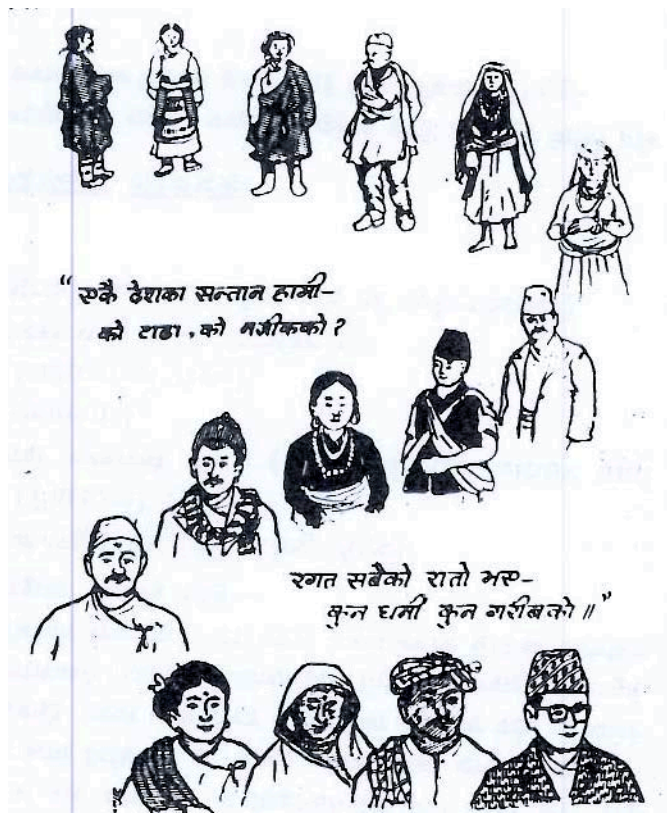 “ एकै देशका सन्तान हामी-
को टाढा, को नजीकको ?
रगत सबैको रातो भए-
कुन धनी कुन गरीबको ॥”